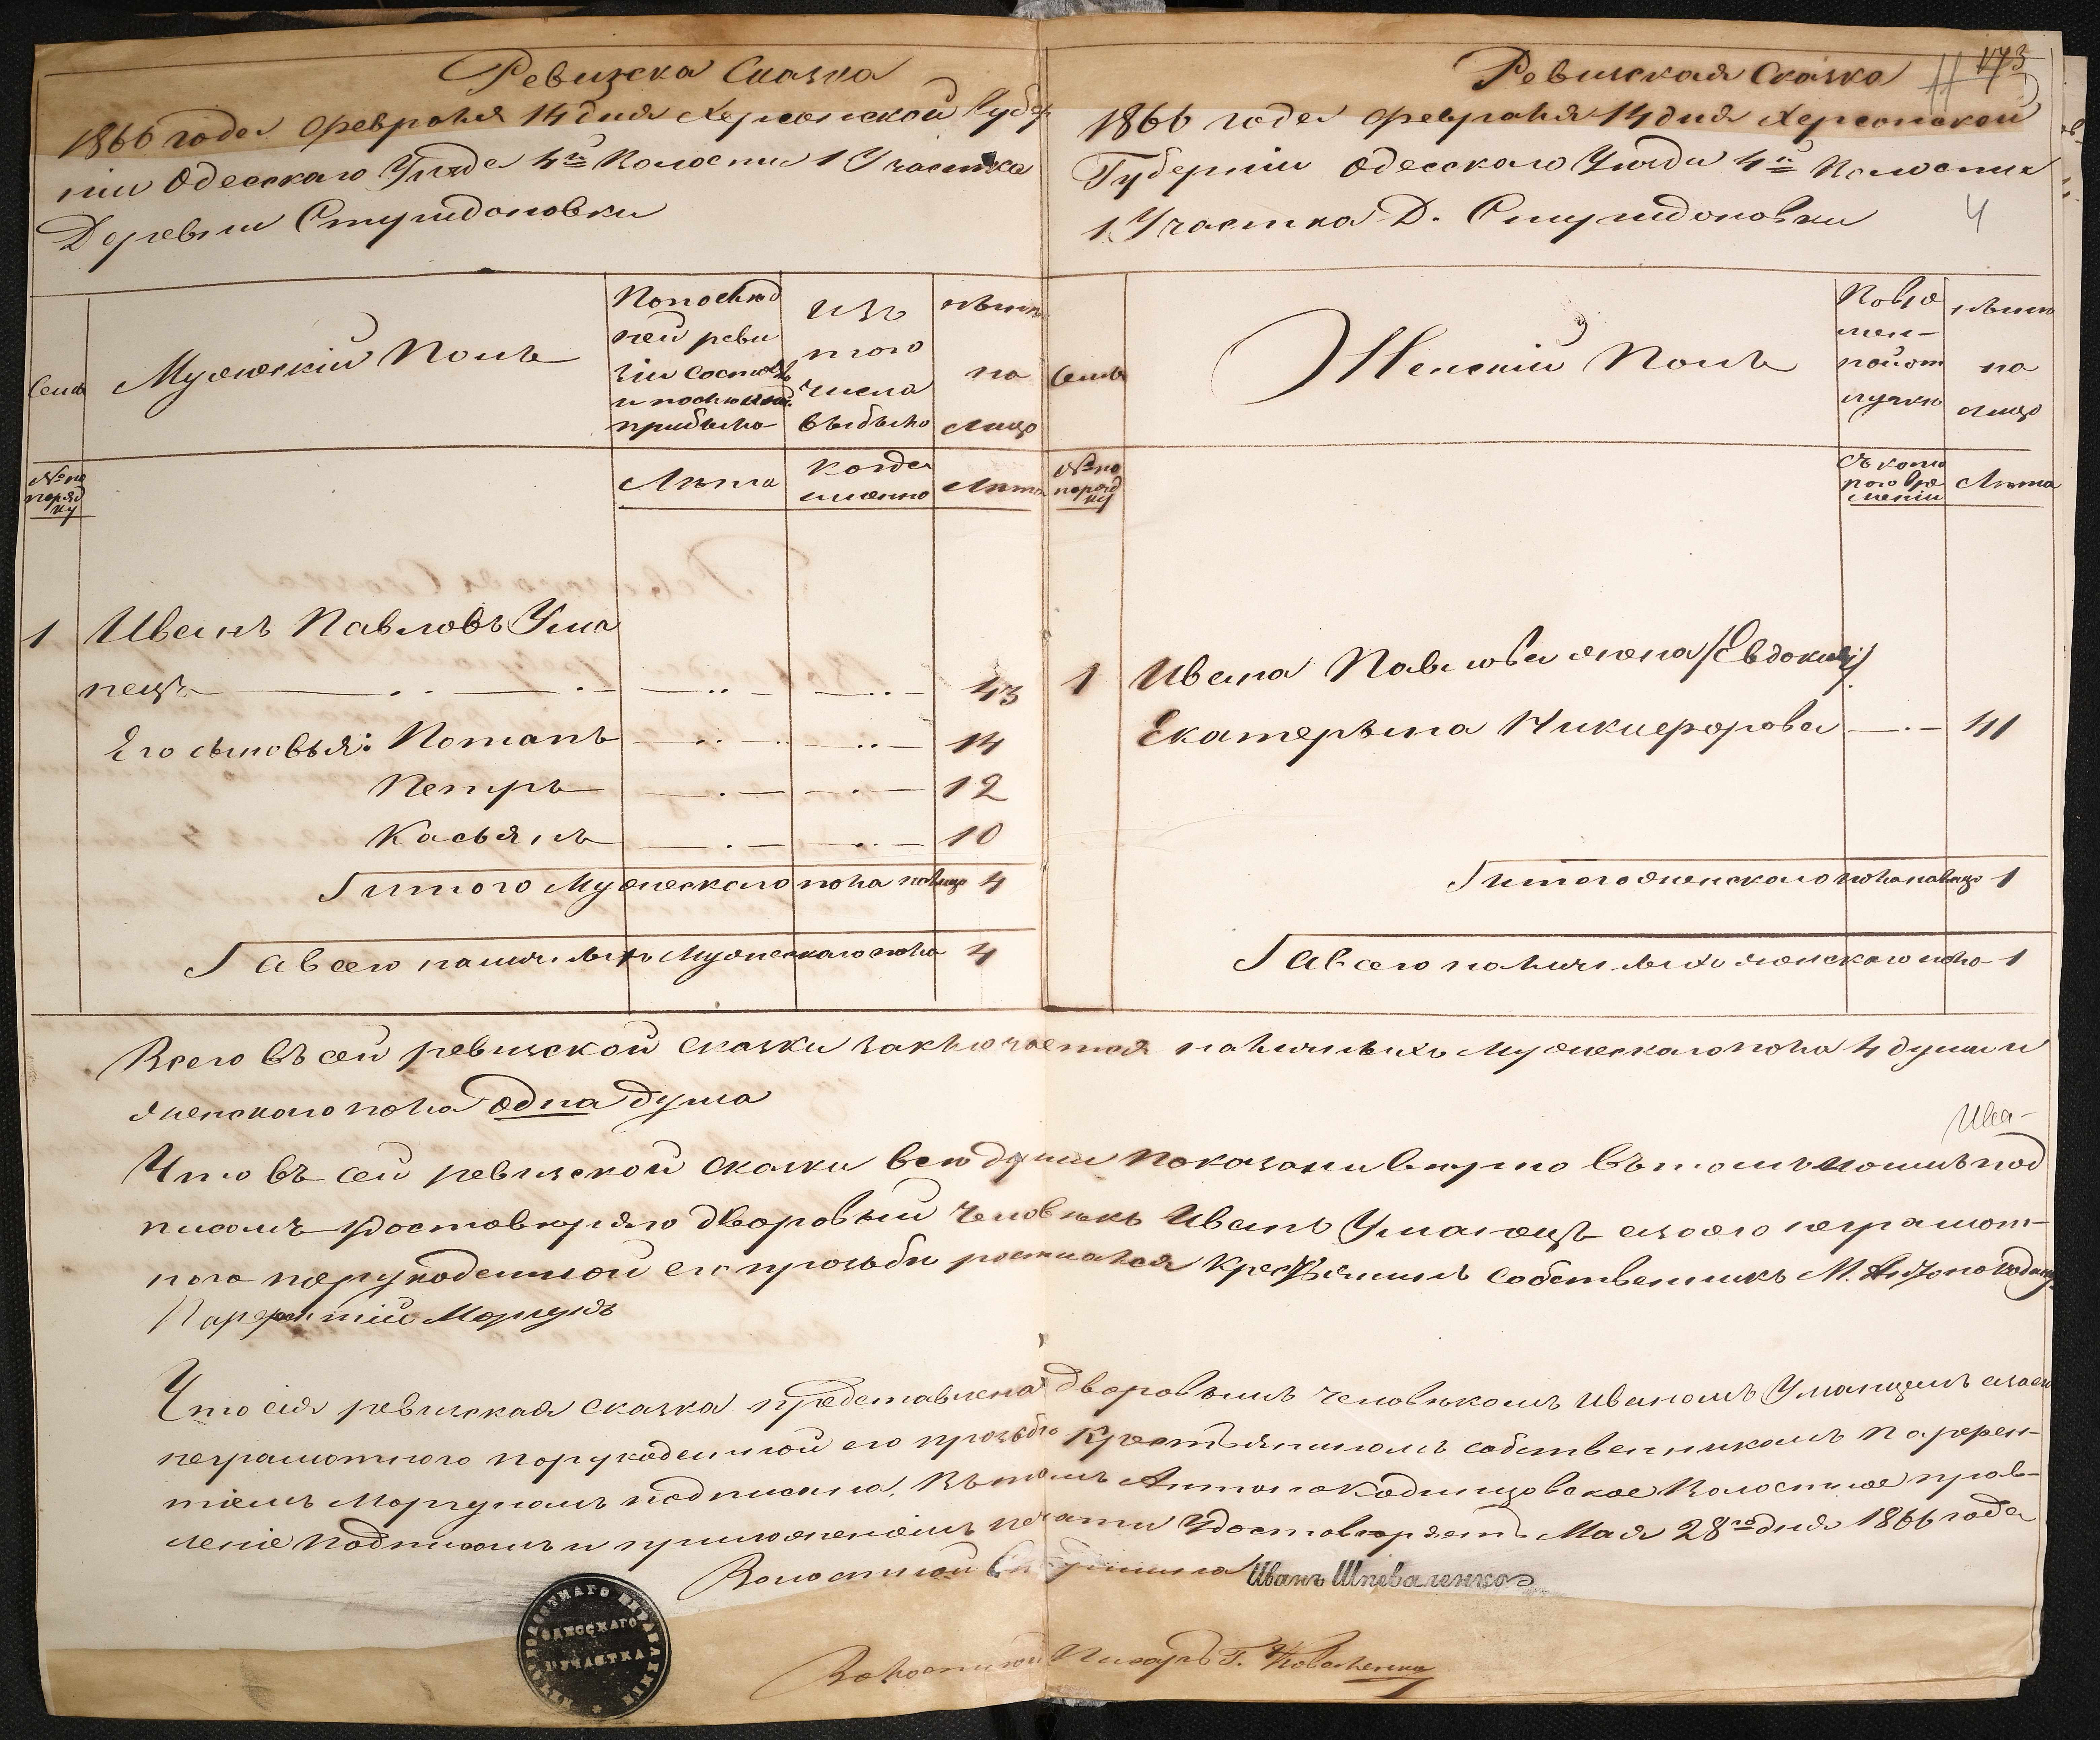 Ревизска Сказка
1866 года февраля 14 дня Херсонской Губер
ніи Одесскаго Уѣзда 4й Волости 1 Участка
Деревни Стурдоновки
Семьи
Мужескій Полъ
Изъ
того
числа
выбыло
на
Лицо
№ по
поряд
ку
Лѣта
когда
именно
Лѣта
1 Иванъ Павловъ Ума
нецъ 43
Его сыновья: Потапъ 14
Петръ 12
Касьянъ 10
Итого Мужескаго пола налицо 4
А всего наличныхъ Мужескаго пола 4
173
Ревизская Сказка
1866 года февраля 14 дня Херсонской
Губерніи Одесскаго Уѣзда 4й Волости
1 Участка Д. Стурдоновки
4
Семьи
Женскій Полъ
Во вре
мен-
ной от
лучкѣ
на
лицо
№ по
поряд
ку
Съ кото
раго вре
мени
Лѣта
1 Ивана Павлова жена /Евдокия/
Екатерына Никифорова 41
Итого женскаго пола налицо 1
А всего наличныхъ женскаго пола 1
Всего въ сей ревизской сказки заключается наличныхъ Мужескаго пола 4 души и
женскаго пола одна душа
Ива-
Что въ сей ревизской сказки всѣ души показаны вѣрно въ томъ под
писомъ удостовѣряю дворовый человѣкъ Иванъ Уманецъ а за его неграмот-
ного порукоданной его прозьби росписался Крестьянинъ собственникъ М.
Парфентій Моргунъ
Что сія ревизская сказка представлена дворовымъ человѣкомъ Иваномъ Уманцемъ а за его
неграмотного порукоданной его прозьбѣ Крестьяниномъ собственникомъ Парфен-
тіемъ Моргуномъ подписана. Въ томъ Антонокодинцовское Волостное прав-
леніе подписомъ и приложеніемъ печати Удостовѣряетъ Мая 28го дня 1866 года
Волостной Старшина Иванъ Шпеваленко
ОДЕССКАГО
УЧАСТКА
Волостной Писарь Г. Коваленко